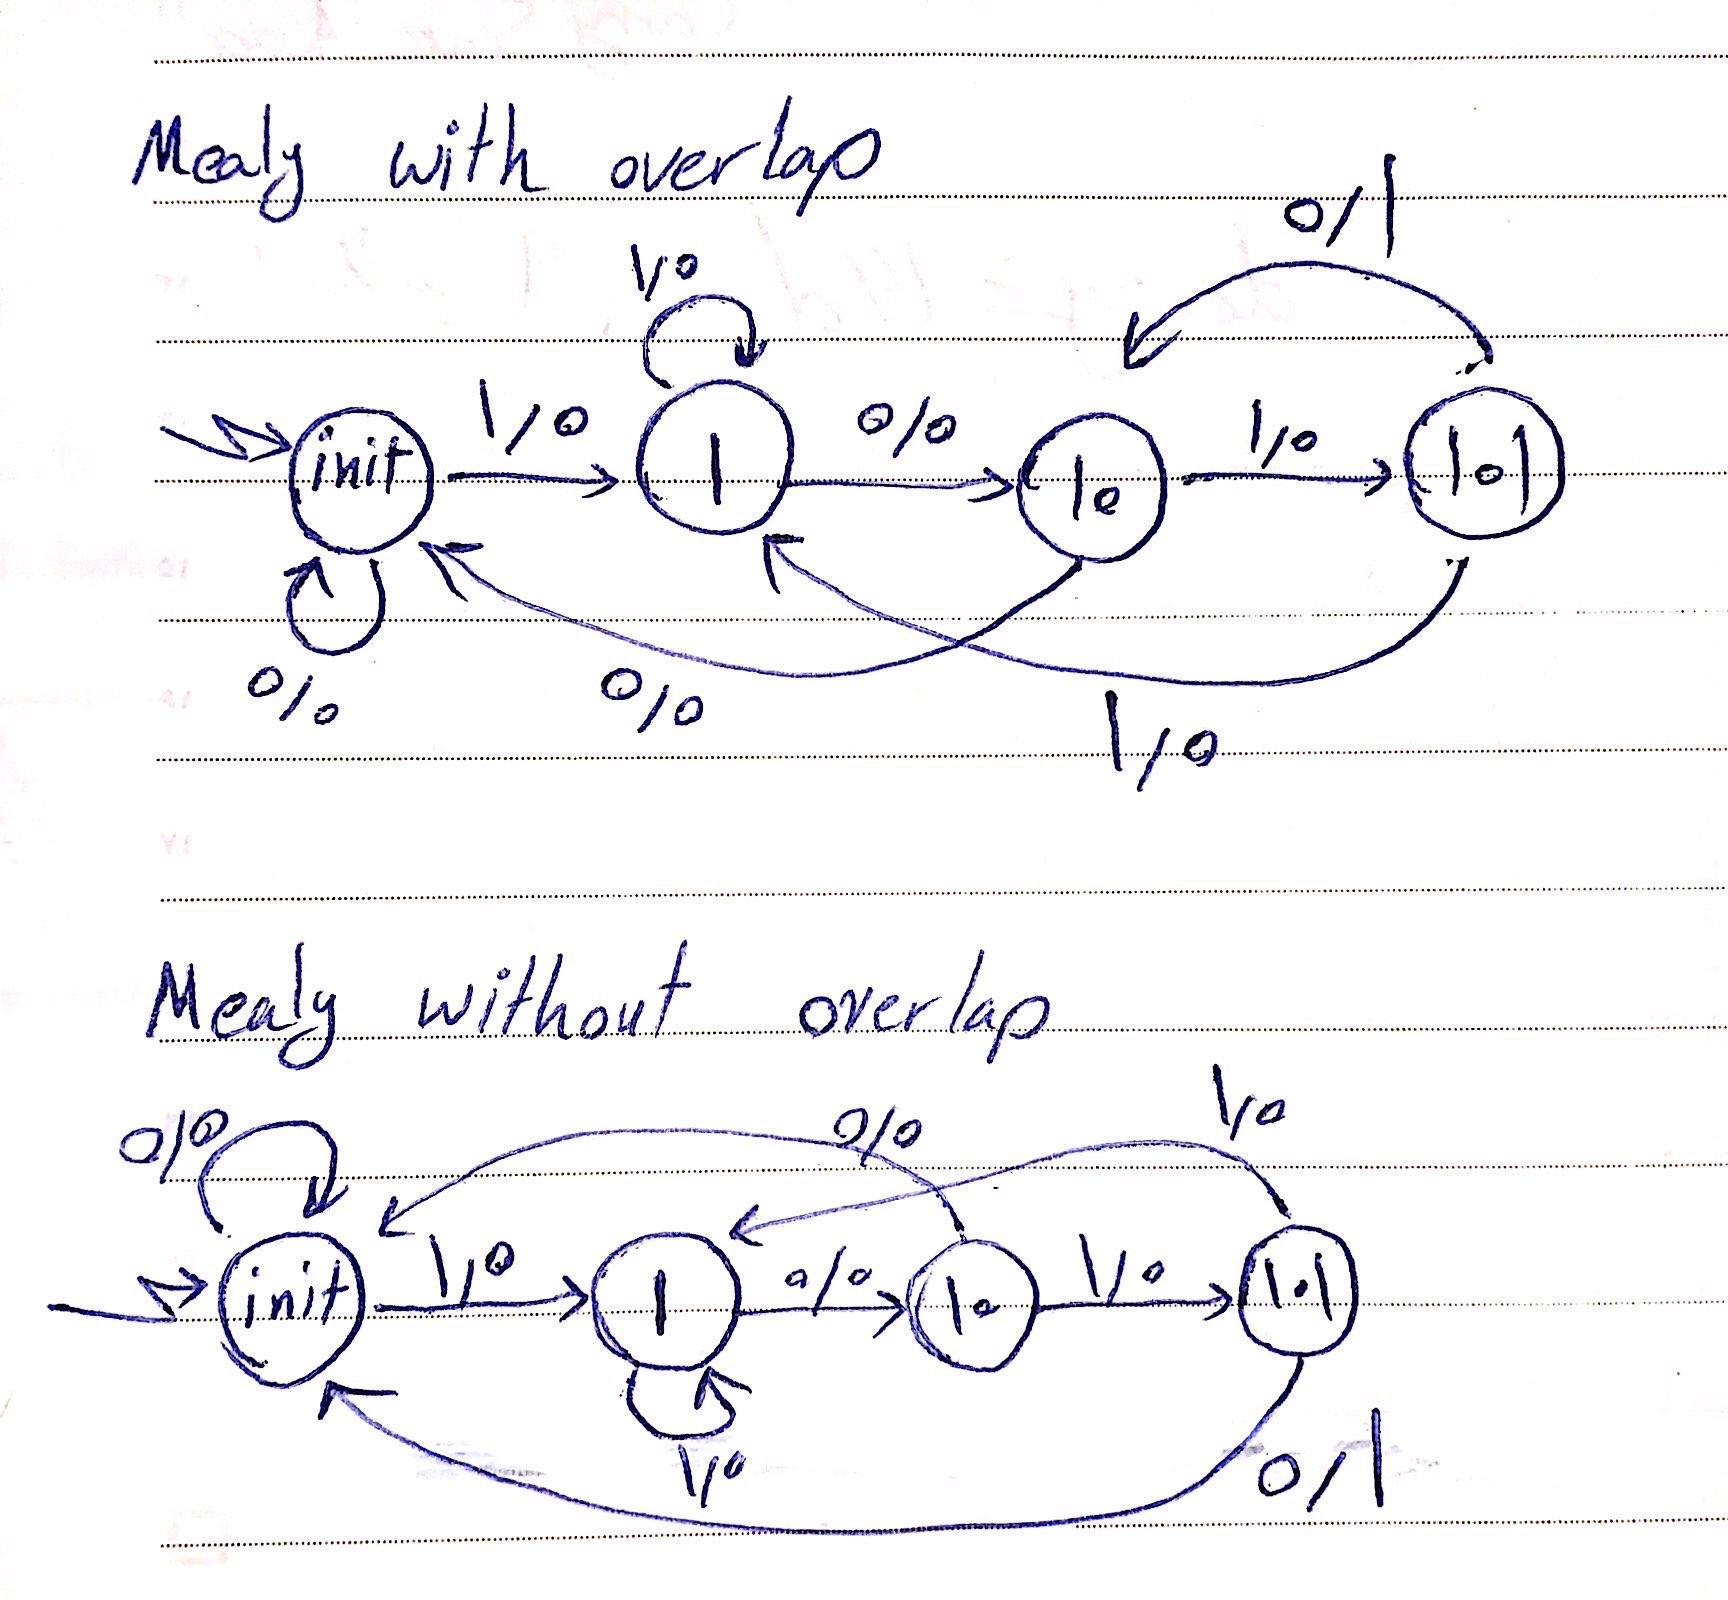 Mealy with overlap
0/1
1/0
1/0 0/0 1/0
init 1 10 101
0/0 0/0 1/0
Mealy without overlap
0/0 0/0 1/0
1/0 0/0 1/0
init 1 10 101
1/0 0/1